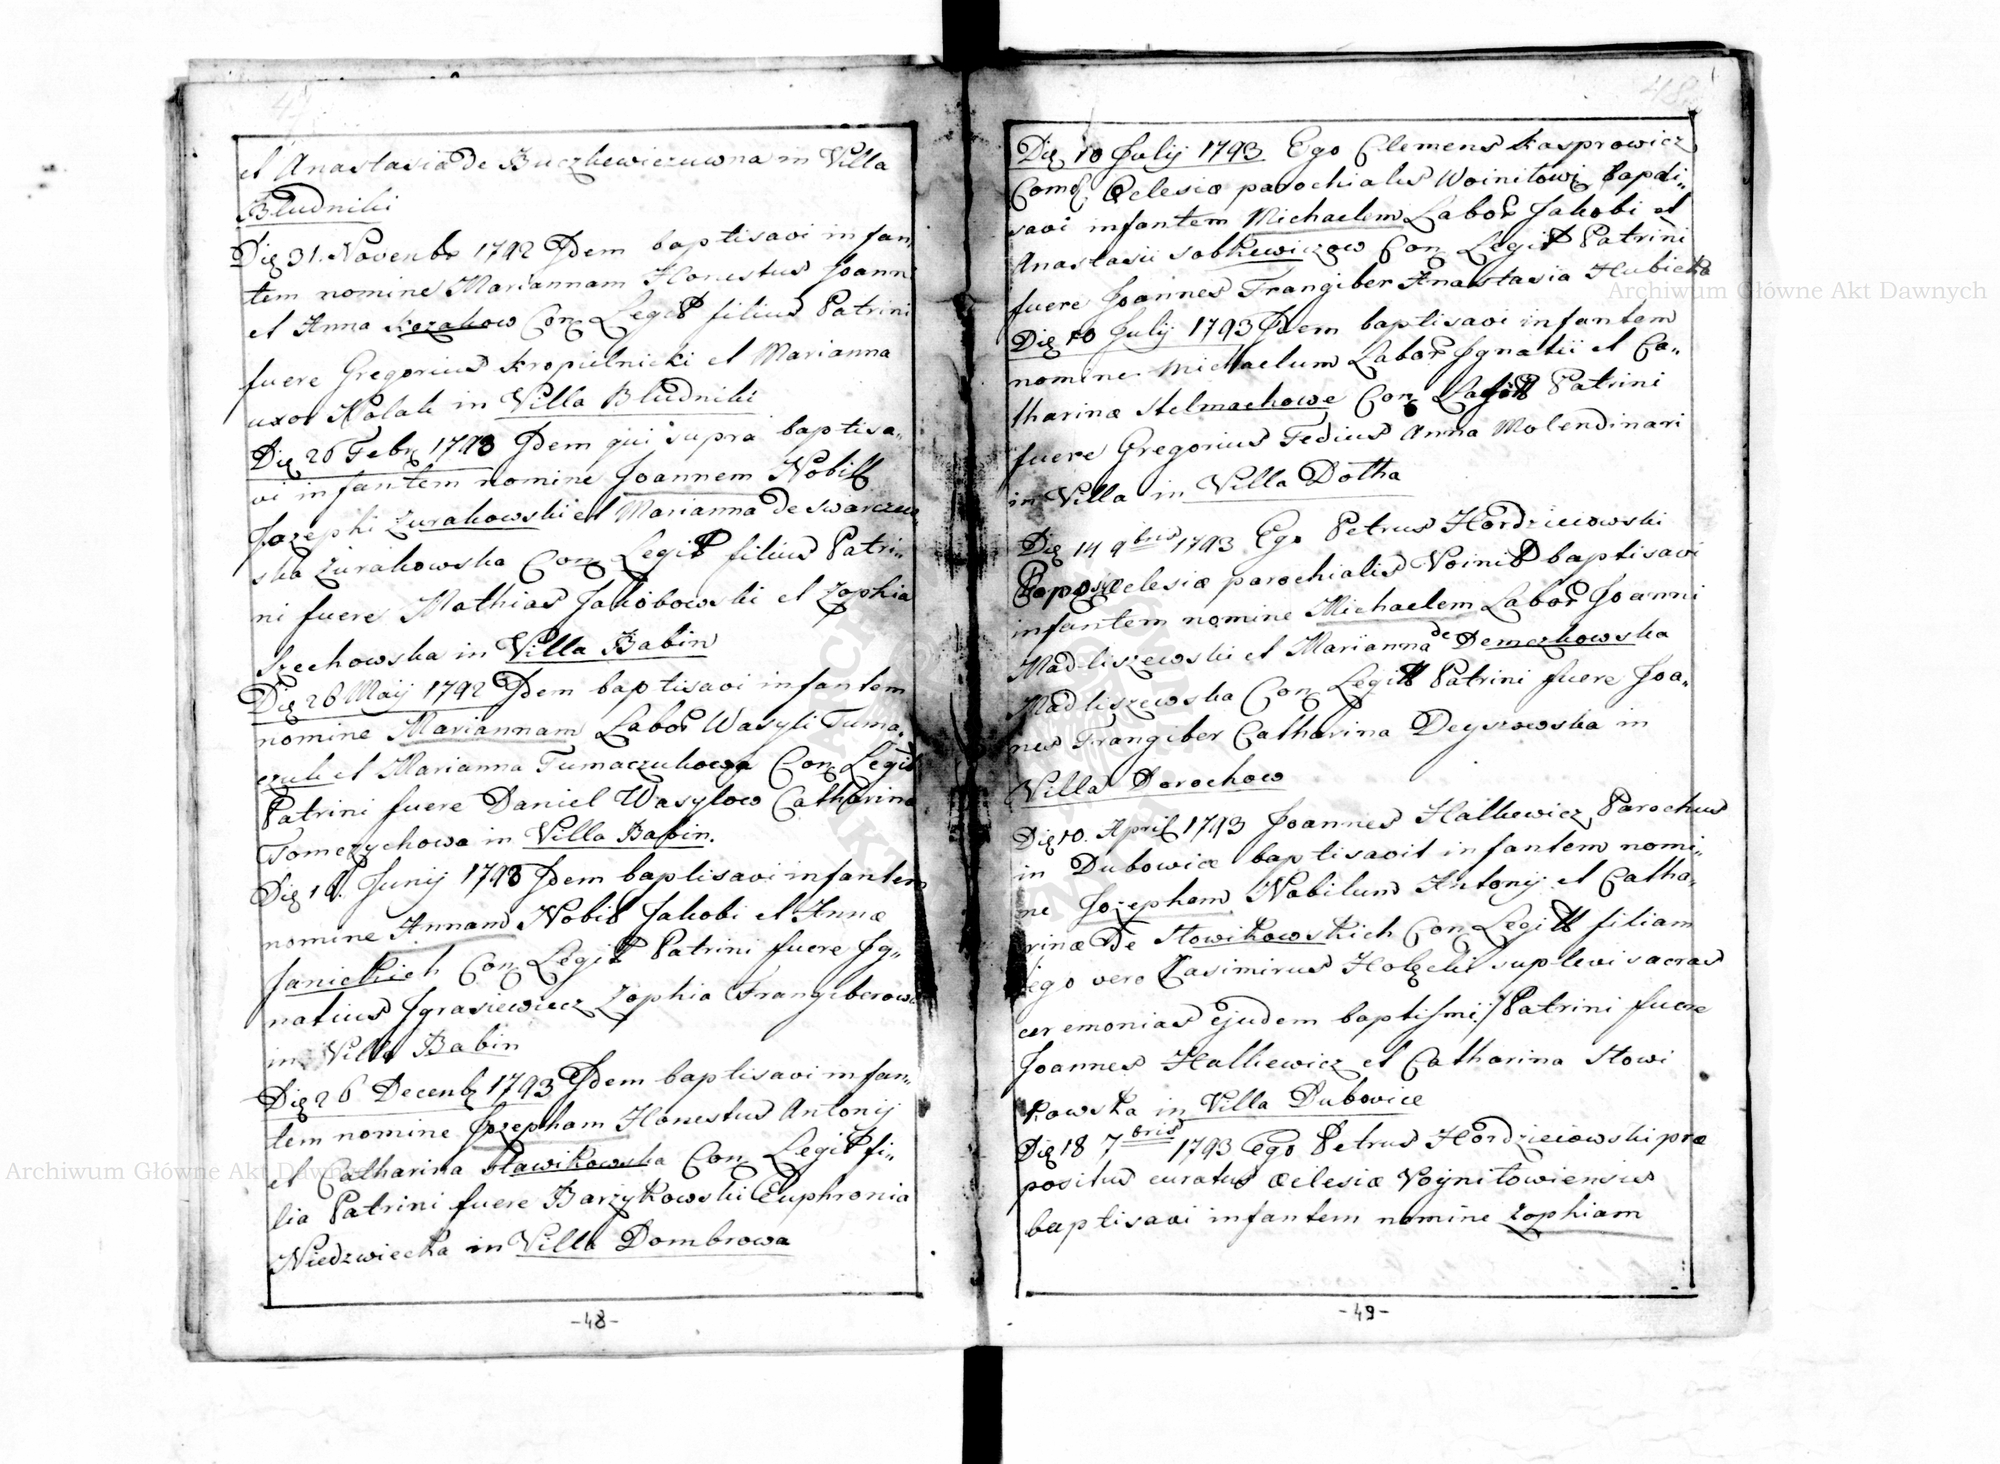 47
et Anastasia de Buczkiewiczuwna in Villa
Bludniki
Die 31. Novembr 1792 Idem baptisavi infan„
tem nomine Mariannam Honestus Joanni
et Anna Kozakow Con. Legit filius Patrini
fuere Gregorius Kropielnicki et Marianna
uxor Kolak in Villa Bludniki
Die 26 Febr 1793 Idem qui supra baptisa„
vi infantem nomine Joannem Nobill
Jozephi Zurakowski et Marianna de Swarczew
ska Zurakowska Con. Legit filius Patri„
ni fuere Mathias Jakobowski et Zophia
Szechowska in Villa Babin
Die 26 Maij 1792 Idem baptisavi infantem
nomine Mariannam Labor Wasyli Tuma„
czuk et Marianna Tumaczukowa Con. Legit
Patrini fuere Daniel Wasylow Catharina
Tomczychowa in Villa Babin.
Die 19. Junij 1793 Idem baptisavi infantem
nomine Annam Nobil Jakobi et Annæ
Janickich Con. Legit Patrini fuere Ig„
natius Igrasiewicz Zophia Frangiberowa
in Villa Babin
Die 26 Decemb 1793 Idem baptisavi infan„
tem nomine Jozepham Honestus Antonij
et Catharina Slawikowska Con. Legit fi„
lia Patrini fuere Barzykowski Euphronia
Niedzwiecka in Villa Dombrowa
-48-
48
Die 10 Julij 1793. Ego Clemens Kasprowicz
Comd. Eclesiæ parochialis Woinilowi bapti„
savi infantem Michaelem Labor Jakobi et
Anastasii Sobkewiczow Con. Legit Patrini
fuere Joannes Frangiber Anastasia Hubicka
Die 10 Julij 1793 Idem baptisavi infantem
nomine Michaelum Labor Ignatii et Ca„
tharinæ Stelmachowe Con. Legit Patrini
fuere Gregorius Fedius Anna Molendinari
in Villa in Villa Dolha
Die 14 9bris 1793 Ego Petrus Hordzieiowski
Præpos Eclesiæ parochialis Voinil baptisavi
infantem nomine Michaelem Labor Joanni
Madliszewski et Marianna de Demezkowska
Madliszewska Con. Legitt Patrini fuere Joa„
nes Frangiber Catharina Deyszowska in
Villa Dorochow
Die 10. April 1793 Joannes Halkewicz Parochus
in Dubowicæ baptisavit infantem nomi„
ne Jozepham Nobilum Antonij et Catha„
rinæ de Slowikowskich Con. Legitt filiam
Ego vero Casimirus Holecki suplevi sacras
ceremonias ejudem baptismi / Patrini fuere
Joannes Halkiewicz et Catharina Slowi
kowska in Villa Dubovice
Die 18 7bris 1793 Ego Petrus Hordzieiowski præ
positus curatus Æclesiæ Voynilowiensis
baptisavi infantem nomine Zophiam
-49-
Archiwum Główne Akt Dawnych
Archiwum Główne Akt Dawnych